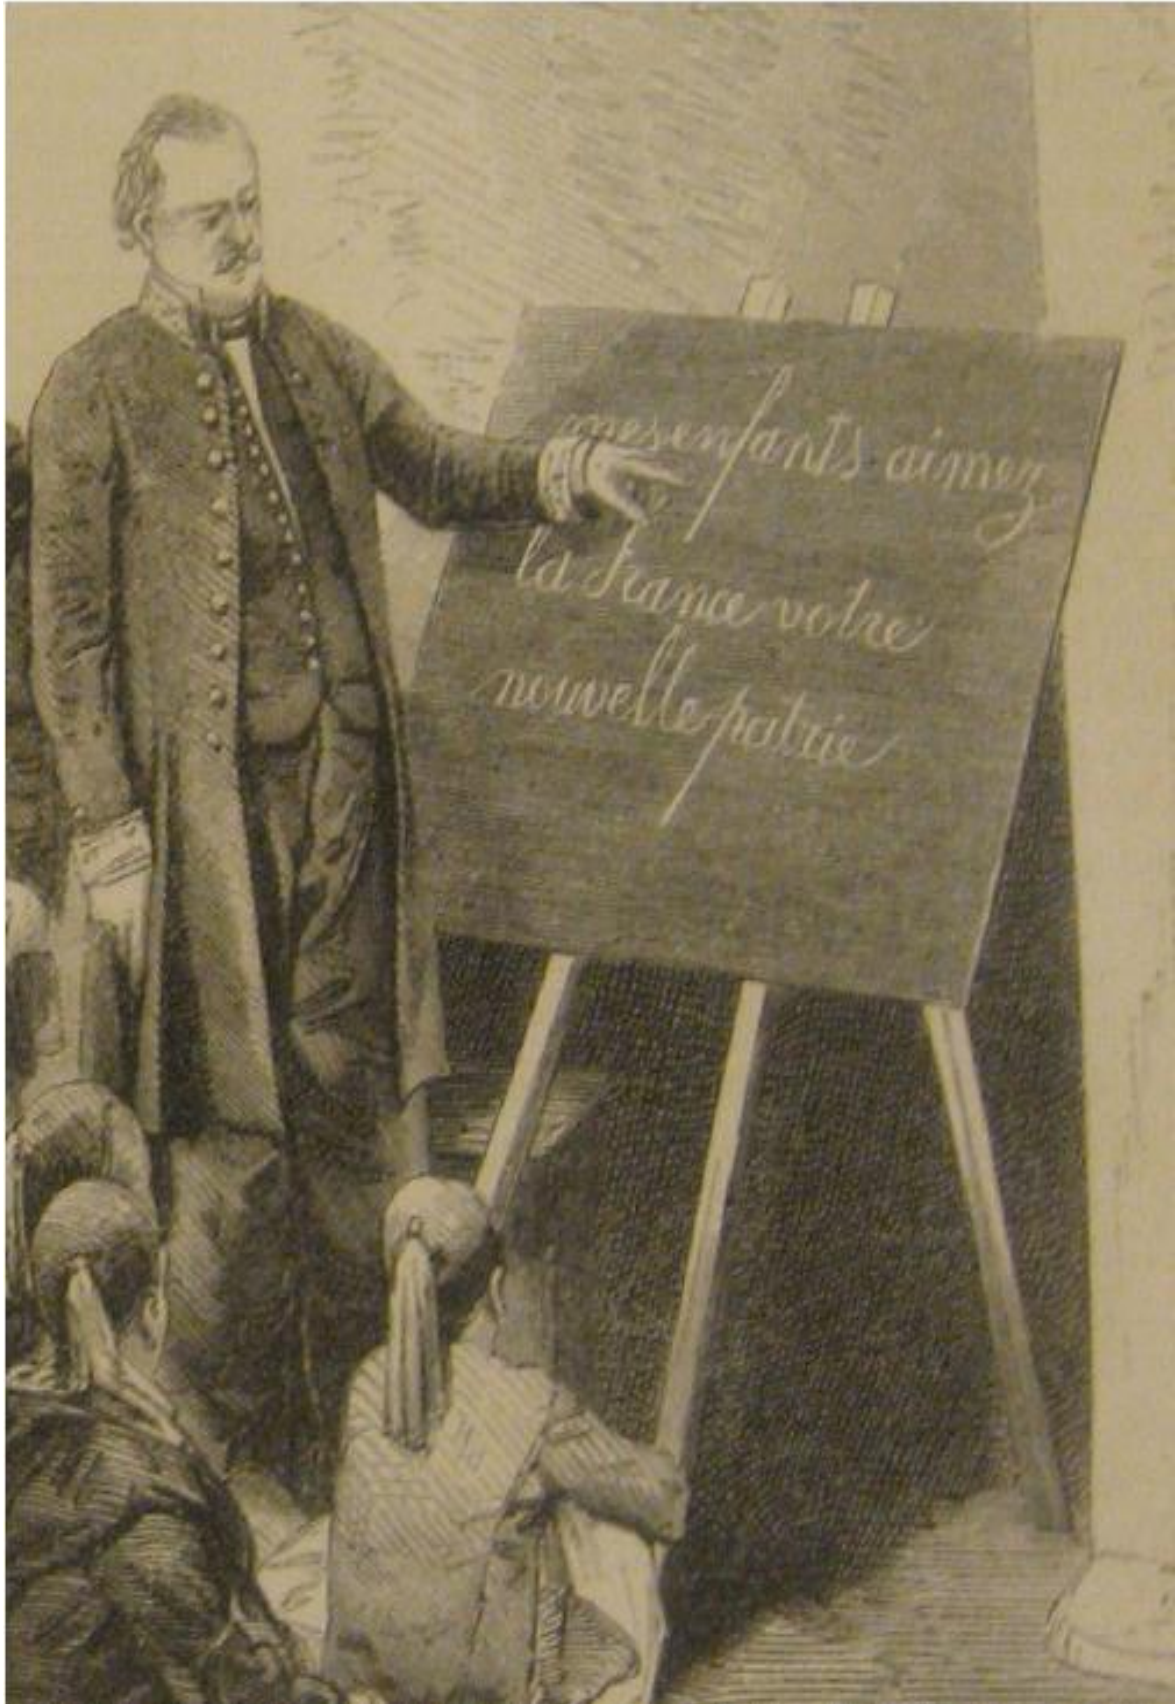 mes enfants aimez
la France votre
nouvelle patrie